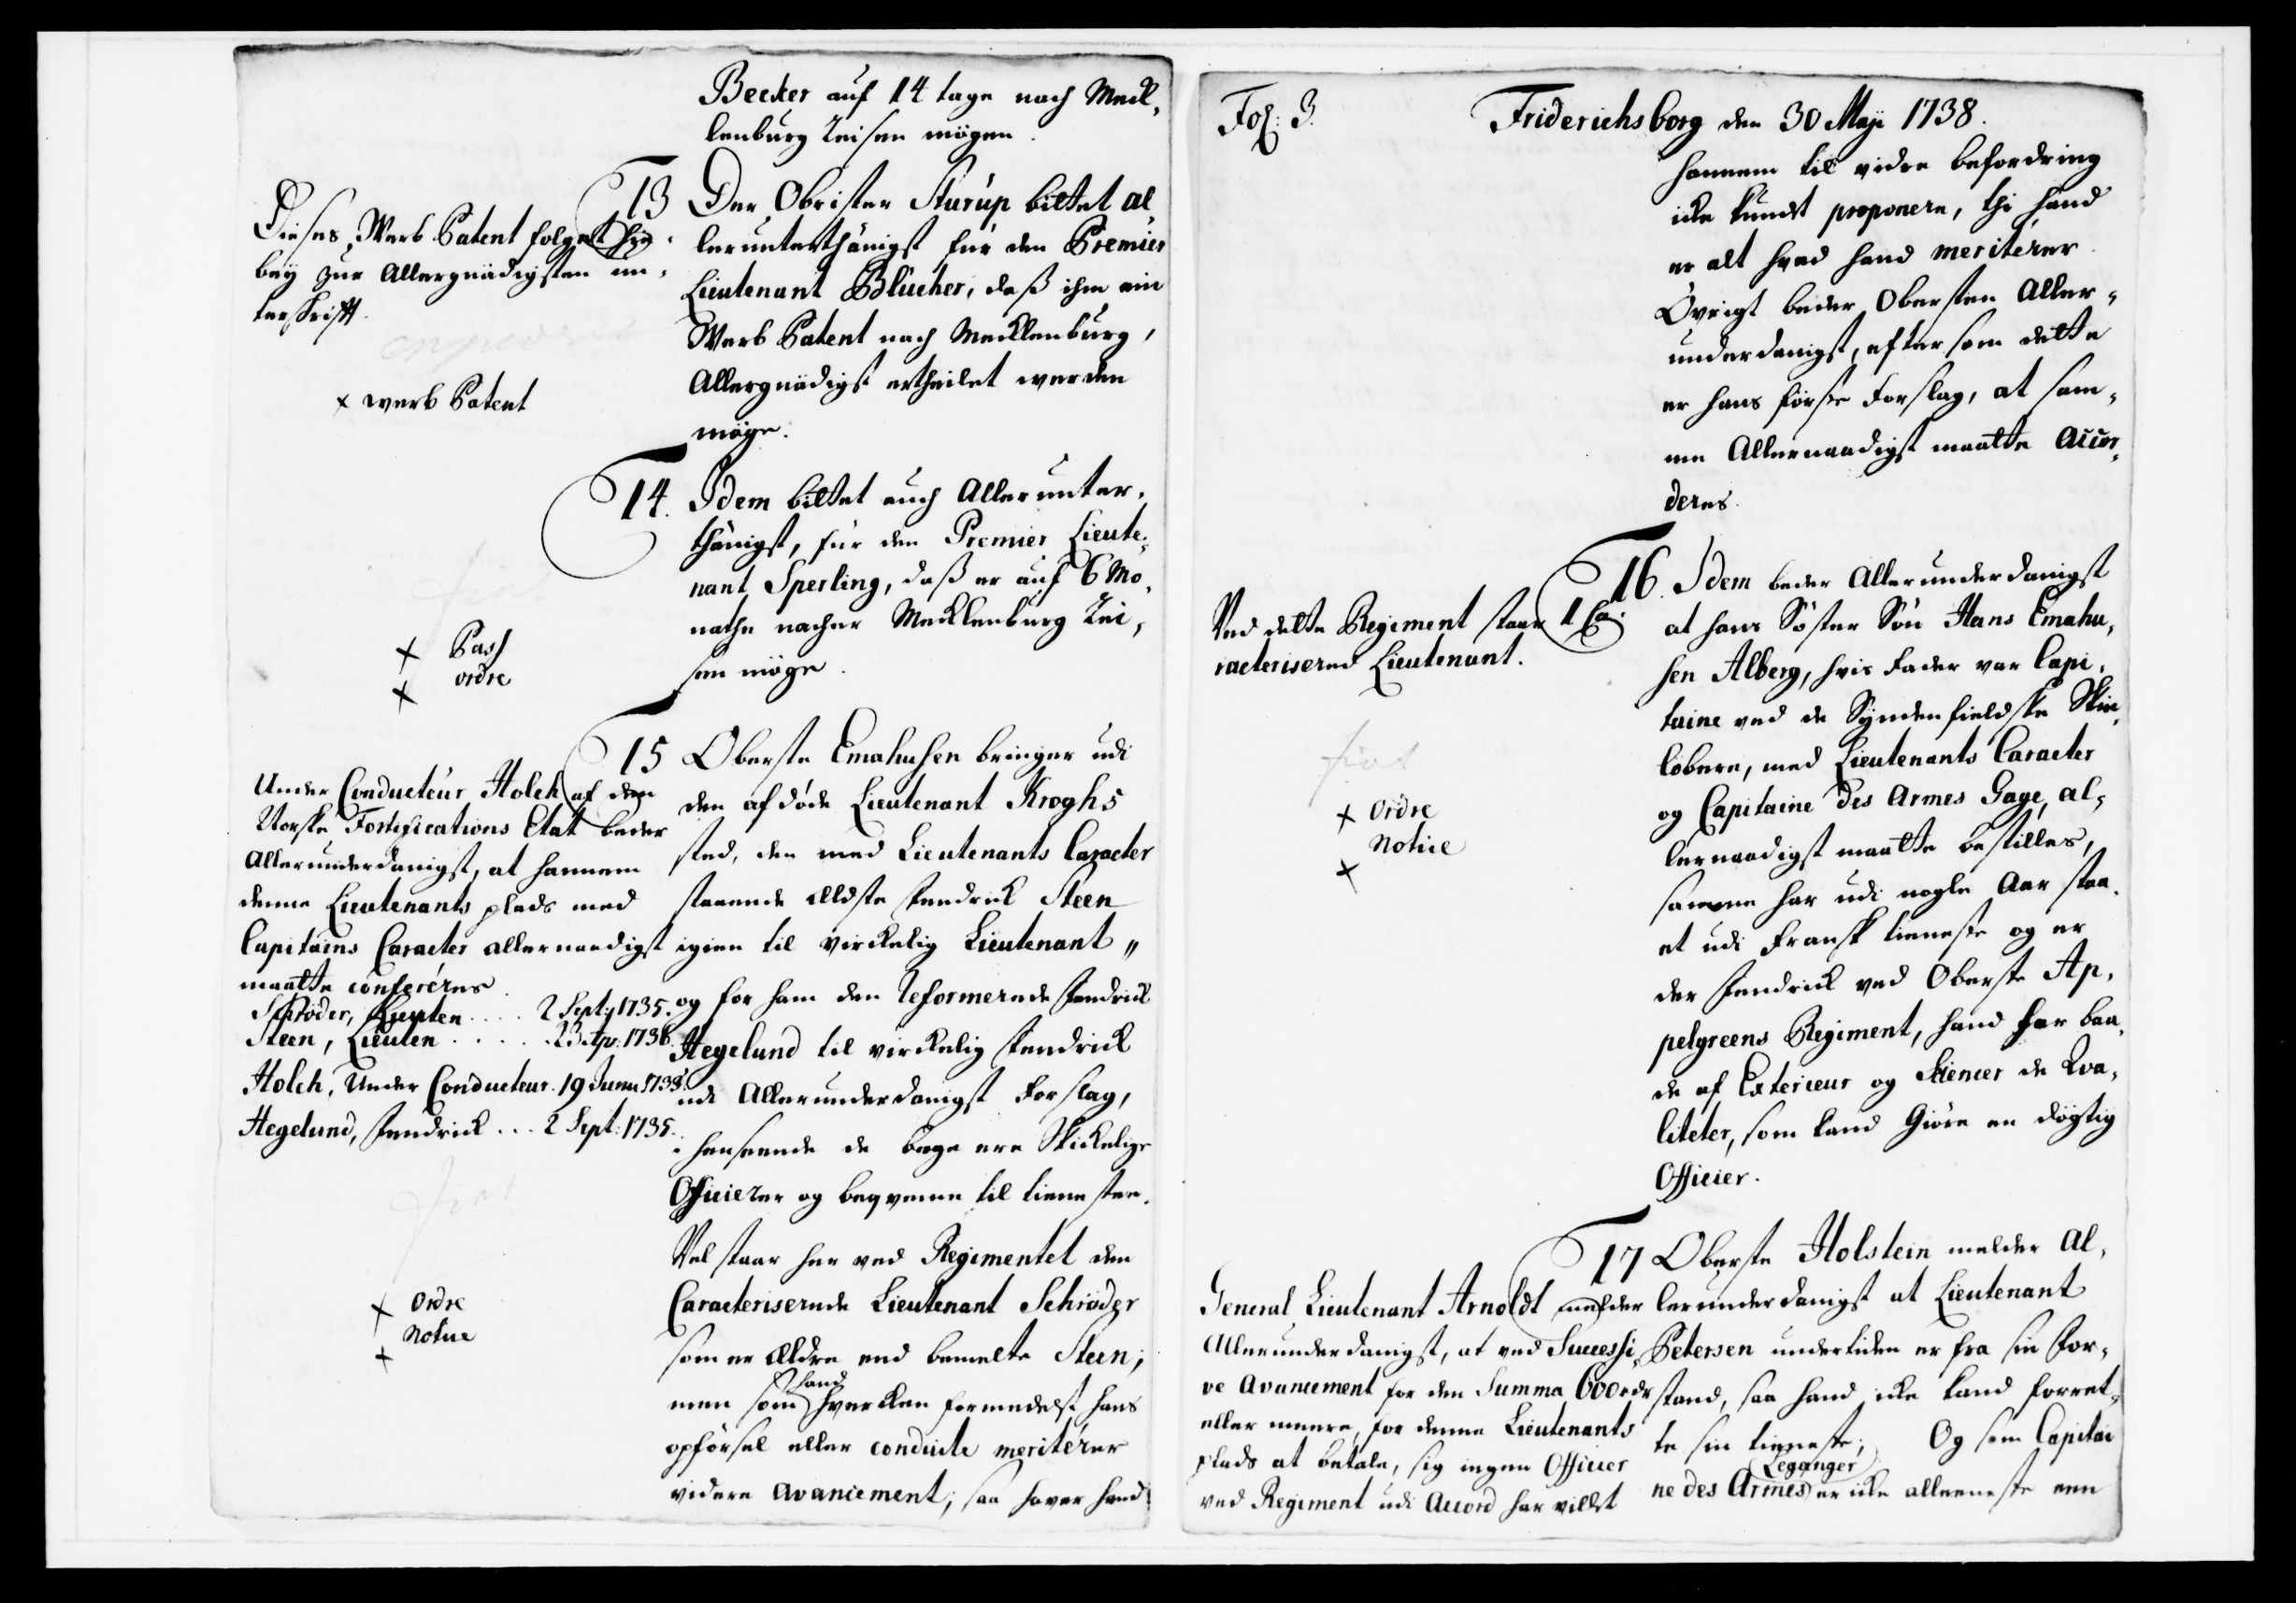 Becker auf 14 tage nach Meck,
lenburg Reisen mögen.
13 Der Obrister Sturup bittet al
lerunterthänigst für den Premier
Lieutenant Blücher, daß ihm ein
Werb Patent nach Mecklenburg,
Allergnädigst ertheilet werden
möge.
Dieses Werb Patent folget hie
beÿ zur Allergnädigsten un,
terschrifft.
x werb Patent
14. Idem bittet auch Allerunter,
thänigst, für den Premier Lieute,
nant Sperling, daß er auf 6 Mo,
nathe nacher Mecklenburg Rei,
sen möge.
fiat
x Pass
x ordre
15 Oberste Emahusen bringer udi
den afdøde Lieutenant Kroghs
sted, den med Lieutenants Caracter
staaende ældste Fendrick Steen
igien til virckelig Lieutenant "
og for ham den Reformerede Fendrick
Hegelund til virckelig Fendrick
udi Allerunderdanigst Forslag,
henseende de bege ere Skickelige
Officierer og beqvemme til tienesten.
Vel staar her ved Regimentet den
Caracteriserede Lieutenant Schrøder
som er Ældre end bemelte Steen;
men som hand hverken formedelst hans
opførsel eller conduite meritérer
videre avancement, saa haver hand
Under Conducteur Holck af den
Norske Fortifications Etat beder
Allerunderdanigst, at hannem
denne Lieutenants plads med
Capitains Caracter allernaadigst
maatte conferéres.
Schrøder, Lieuten .... 2 Sept: 1735.
Steen, Lieuten ..... 23 Apr: 1736.
Holck, Under Conducteur. 19 Junii 1733.
Hegelund, Fendrick ... 2 Sept: 1735.
fiat
x Ordre
Notice
x
Fol: 3. Friderichsborg den 30 Maji 1738.
hannem til vidre befordring
icke kundet proponere, thi hand
er alt hvad hand meritérer.
Øvrigt beder Obersten Aller,
underdanigst, eftersom dette
er hans første Forslag, at sam,
me Allernaadigst maatte Accor,
deres.
16. Idem beder Allerunderdanigst
at hans Søster Søn Hans Emahu,
sen Alberg, hvis Fader var Capi,
taine ved de Syndenfieldske Skie,
løbere, med Lieutenants Caracter
og Capitaine des Armes Gage, al,
lernaadigst maatte bestilles,
samme har udi nogle Aar staa,
et udi Fransk tieneste og er
der Fendrick ved Oberste Ap,
pelgreens Regiment, hand har baa,
de af Exterieur og Siencer de Qva,
liteter, som kand Giøre en døgtig
Officier.
Ved dette Regiment staar 1 Ca,
racterisered Lieutenant.
fiat
x Ordre
Notice
x
17 Oberste Holstein melder Al,
lerunderdanigst at Lieutenant
Petersen undertiden er fra sin For,
stand, saa hand icke kand forret,
te sin tieneste; Og som Capitai
ne des Armes Leganger er icke alleeneste een
General Lieutenant Arnoldt melder
Allerunderdanigst, at ved Successi,
ve Avancement for den Summa 600 rdr
eller meere, for denne Lieutenants
plads at betale, sig ingen Officier
ved Regiment udi Accord har villet